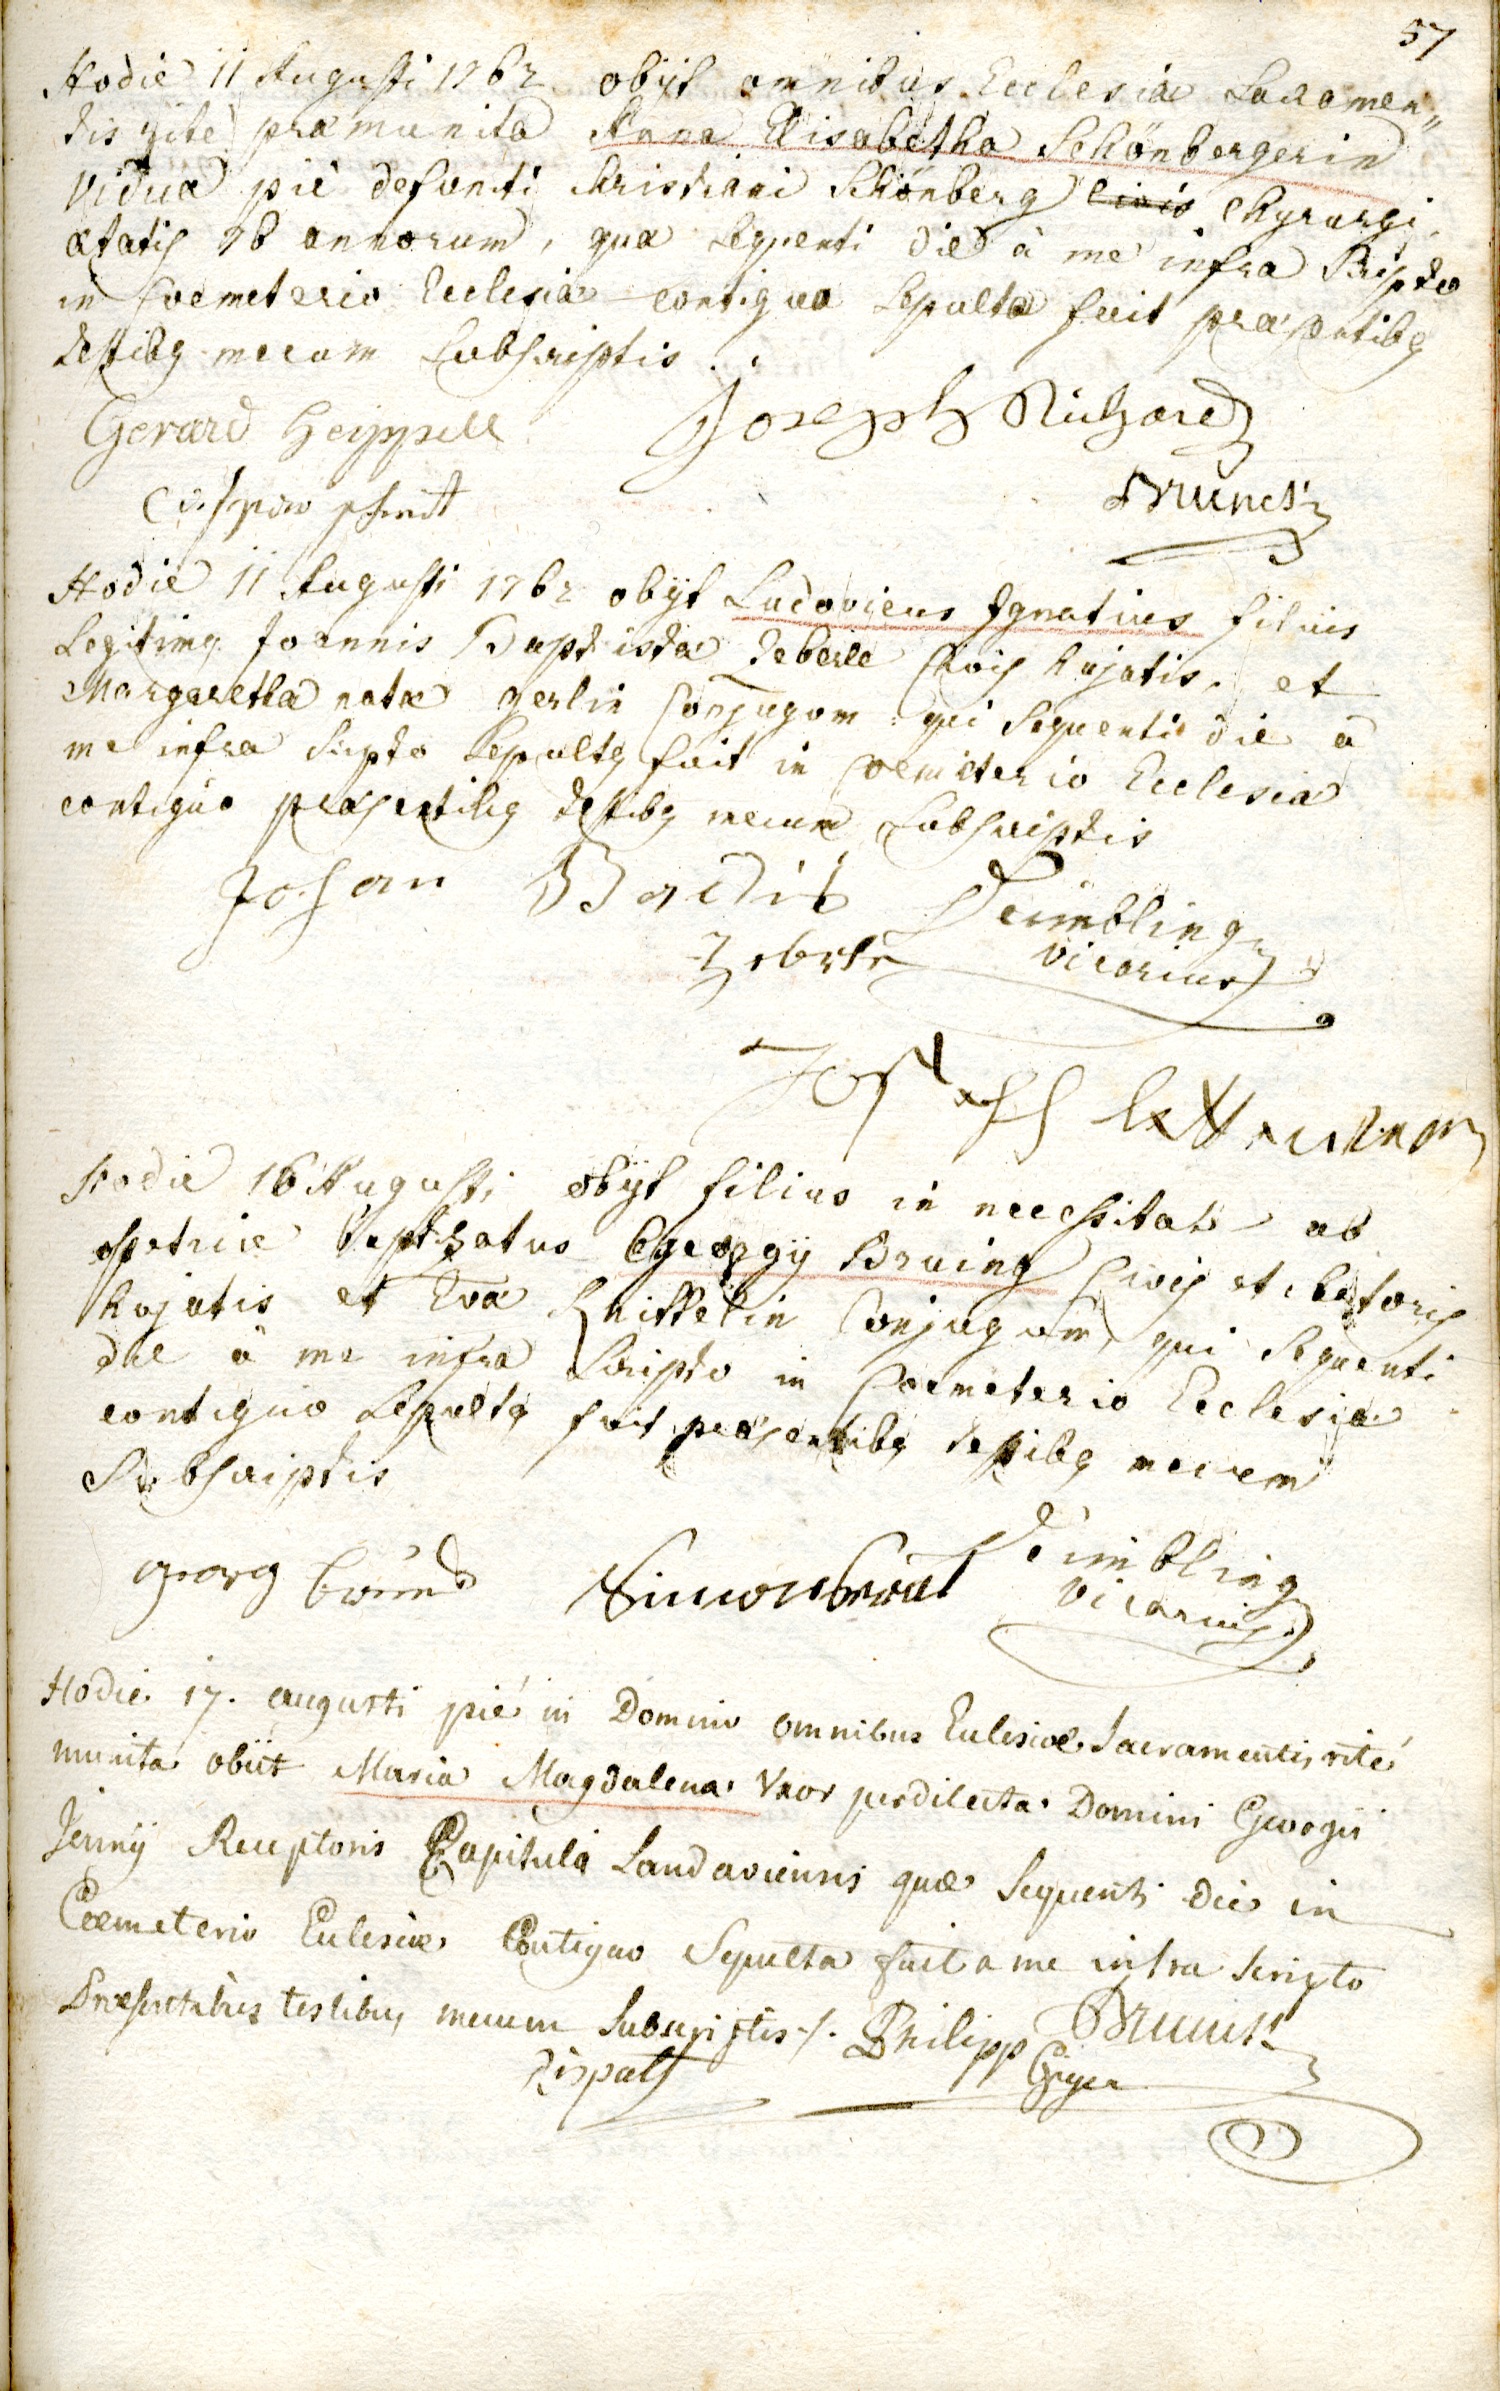 57
Hodie 11 Augusti 1762 obijt omnibus Ecclesiæ Sacamen„
tis rite præmunita Anna Elisabetha Schönbergerin
Vidua pié defuncti Christiani Schönberg civis Chyrurgi
ætatis 76 annorum, quæ sequenti die à me infra Scripto
in Coemeterio Ecclesiæ contiguo Sepulta fuit præsentibq
testibq mecum Subscriptis
Gerard Heippell Joseph Richard
Brunck
Hodie 11 Augusti 1762 obijt Ludovicus Ignatius filius
Legitimq Joannis Baptistæ Zeberle Civis hujatis. et
Margarethæ natæ gerlin Conjugum qui sequenti die à
me infra Scripto Sepultq fuit in Coemeterio Ecclesiæ
contiguo præsentibq testibq mecum Subscriptis
Johan Badist Deimbling
Zeberle Vicarius
Hodie 16 Augusti obijt filius in necessitate ab
opstetrice baptizatus Georgij Bruing Civis et
hujatis et Eva Conjugum, qui Sequenti
die à me infra Scripto in Coemeterio Ecclesiæ
contiguo Sepultq fuit præsentibq testibq mecum
Subscriptis
georg Simon Deimbling
Vicarius
Hodie 17. augusti pié in Domino omnibus Eclesiæ Sacramentis rité
munita obiit Maria Magdalena Uxor perdilecta Domini Georgii
Jenny Receptoris Capituli Landaviensis quæ Sequenti die in
Cœmeterio Eclesiæ Contiguo Sepulta fuit a me infra scripto
Præsentibus testibus mecum Subscriptis ./. Philipp Brunck
Geiger